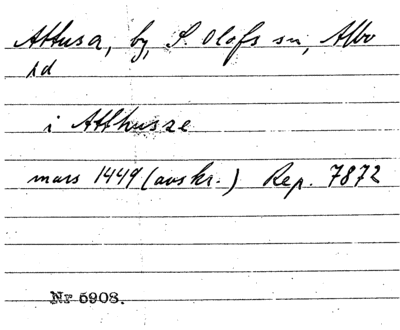 Attusa, by, S. Olofs sn, Albo
hd
i Atthusze
mars 1449 (avskr.) Rep. 7872
Nr 5908.